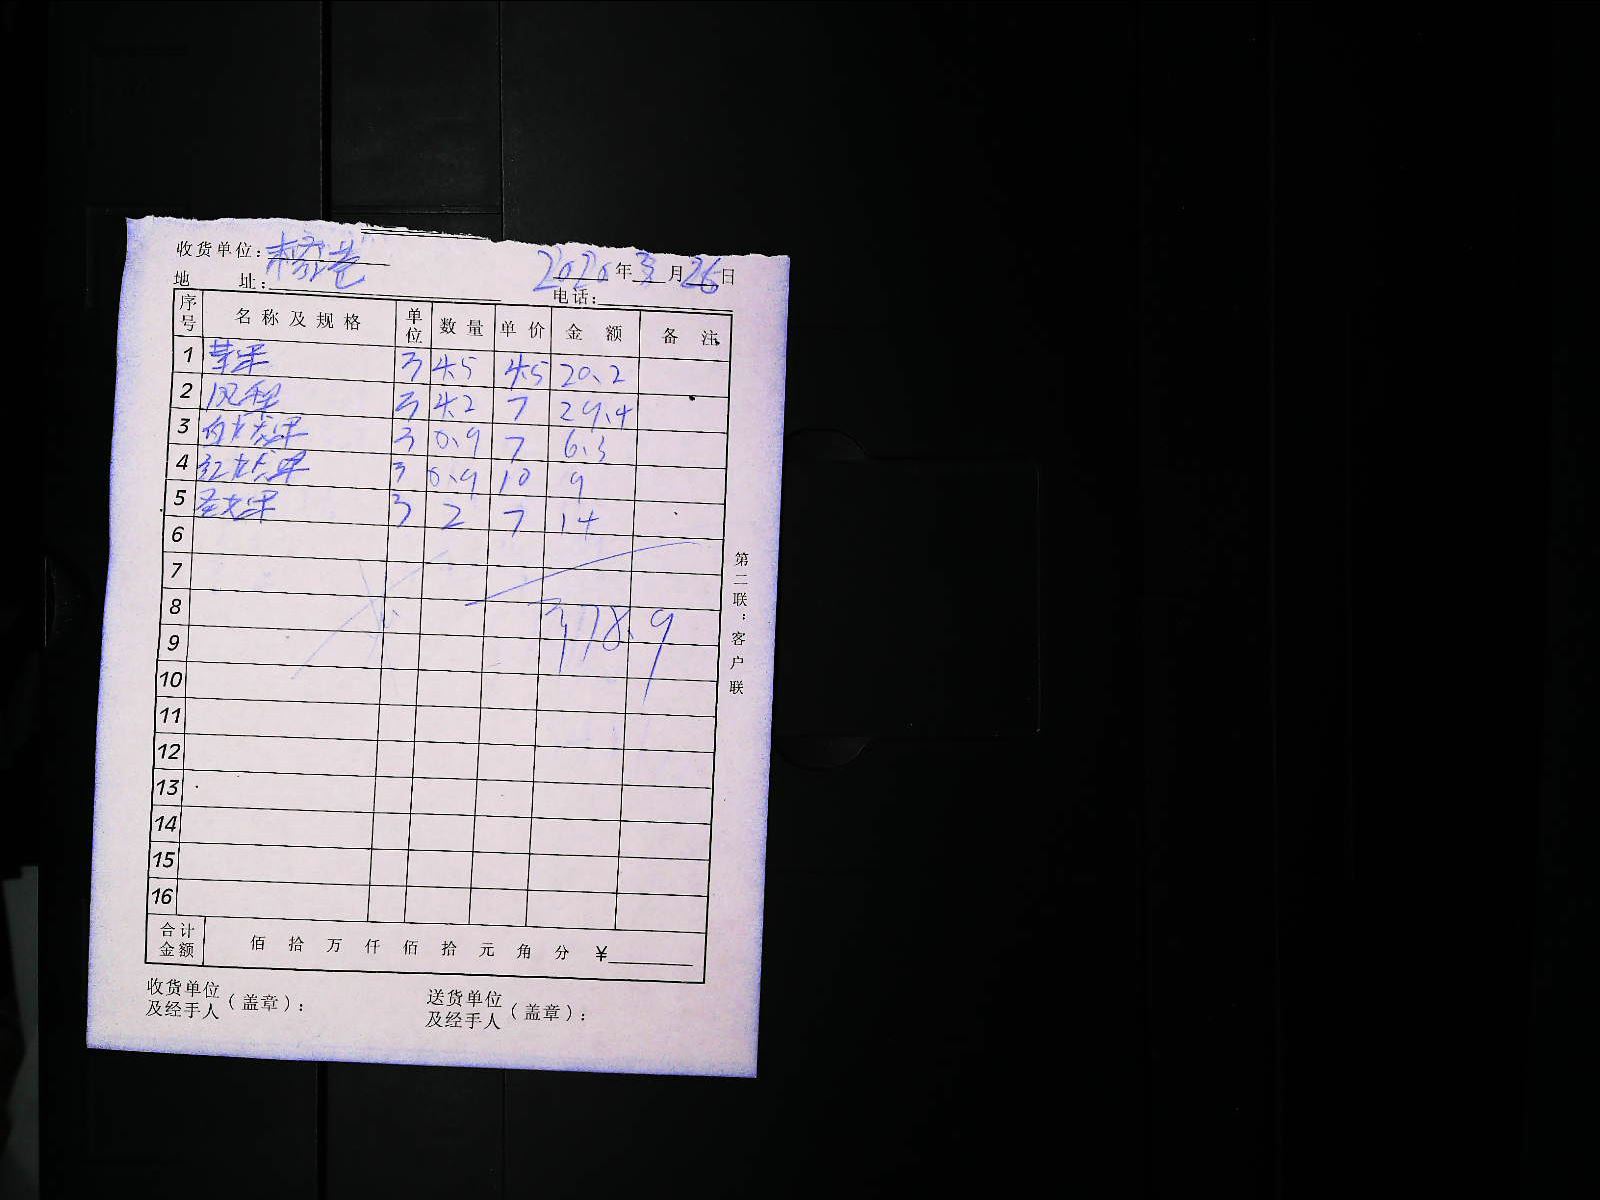 收货单位：杨巷 2020年3月26日
地 址： 电话：
序号 名称及规格 单位 数量 单价 金额 备注
1 苹果 3 4.5 4.5 20.2
2 凤梨 3 4.2 7 29.4
3 白火龙果 3 0.9 7 6.3
4 红火龙果 3 0.9 10 9
5 圣女果 3 2 7 14
6
7
8 378.9
9
10
11
12
13
14
15
16
合计金额 佰 拾 万 仟 佰 拾 元 角 分 ¥
收货单位及经手人（盖章）： 送货单位及经手人（盖章）：
第二联：客户联